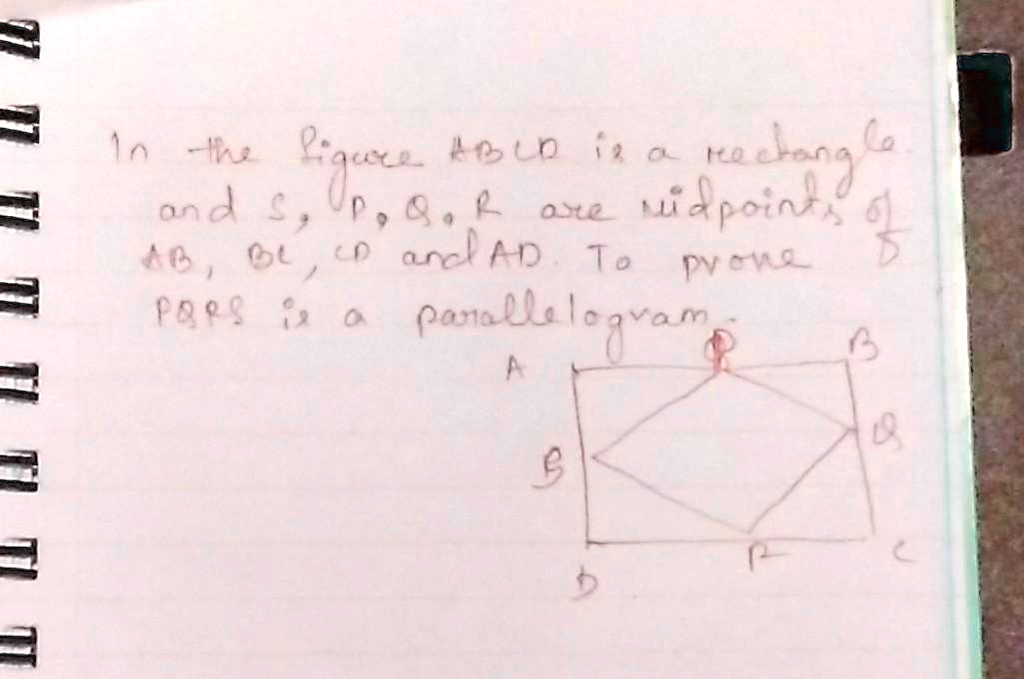 In the figure ABCD is a rectangle.
and S, P, Q, R are midpoints of
AB, BC, CD and AD. To prove
PQRS is a parallelogram.
P B
A
Q
S
R C
D